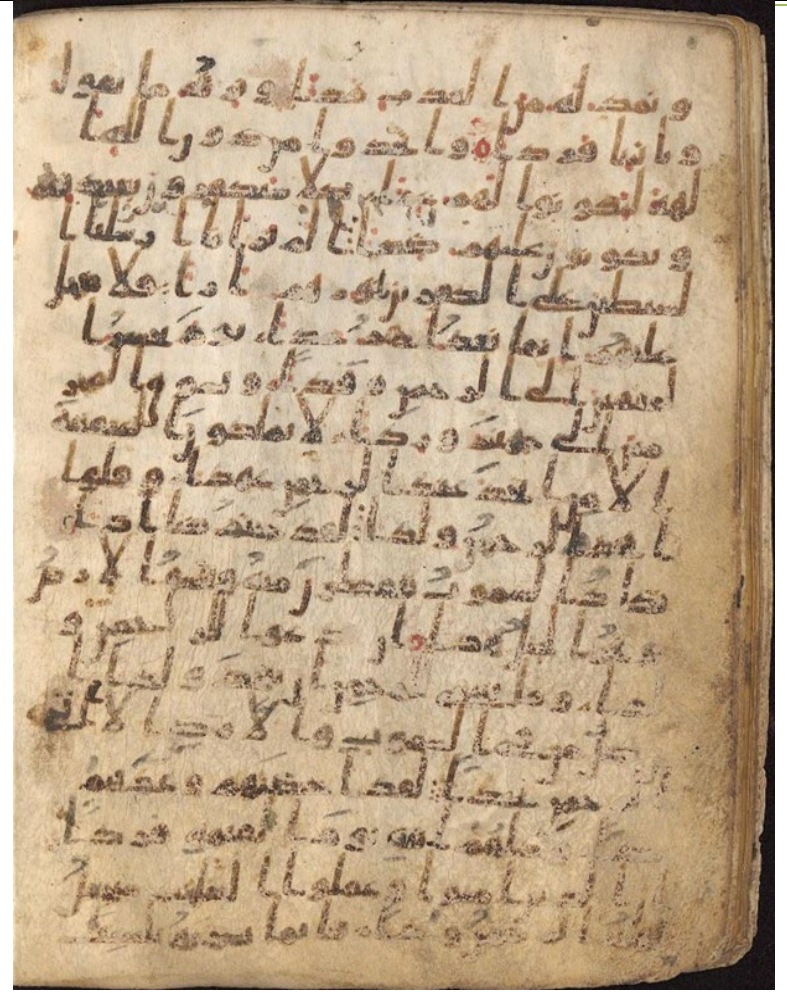 و نمد له من العذاب مدا و نرثه ما يقول
و ياتينا فردا و اتخذوا من دون الله ا
لهة ليكونوا لهم عزا كلا سيكفرون بعبدتهم
و يكونون عليهم ضدا ا لم تر انا ارسلنا ا
لشيطين على ا لكفرين تؤزهم ازا فلا تعجل
عليهم ا نما نعد لهم عدا يوم نحشر ا
لمتقين الى ا لرحمن و فدا و نسوق المجر
مين الى جهنم و ردا لا يملكون ا لشفعة
ا لا من ا تخذ عند ا لرحمن عهدا و قالوا
ا تخذ ا لرحمن و لدا لقد جئتم شيا ادا
تكاد ا لسموت يتفطرن منه و تنشق ا لارض
و تخر ا لجبال هدا ان د عوا للرحمن و
لدا و ما ينبغي للرحمن ان يتخذ و لدا ا
ن كل من في ا لسموت و الارض ا لا اتي
الرحمن عبدا لقد ا حصيهم و عدهم
عدا و كلهم اتيه يوم ا لقيمة فردا
ان ا لذين امنوا و عملوا ا لصلحت سيجعل
لهم ا لرحمن و دا فا نما يسرنه بلسنك